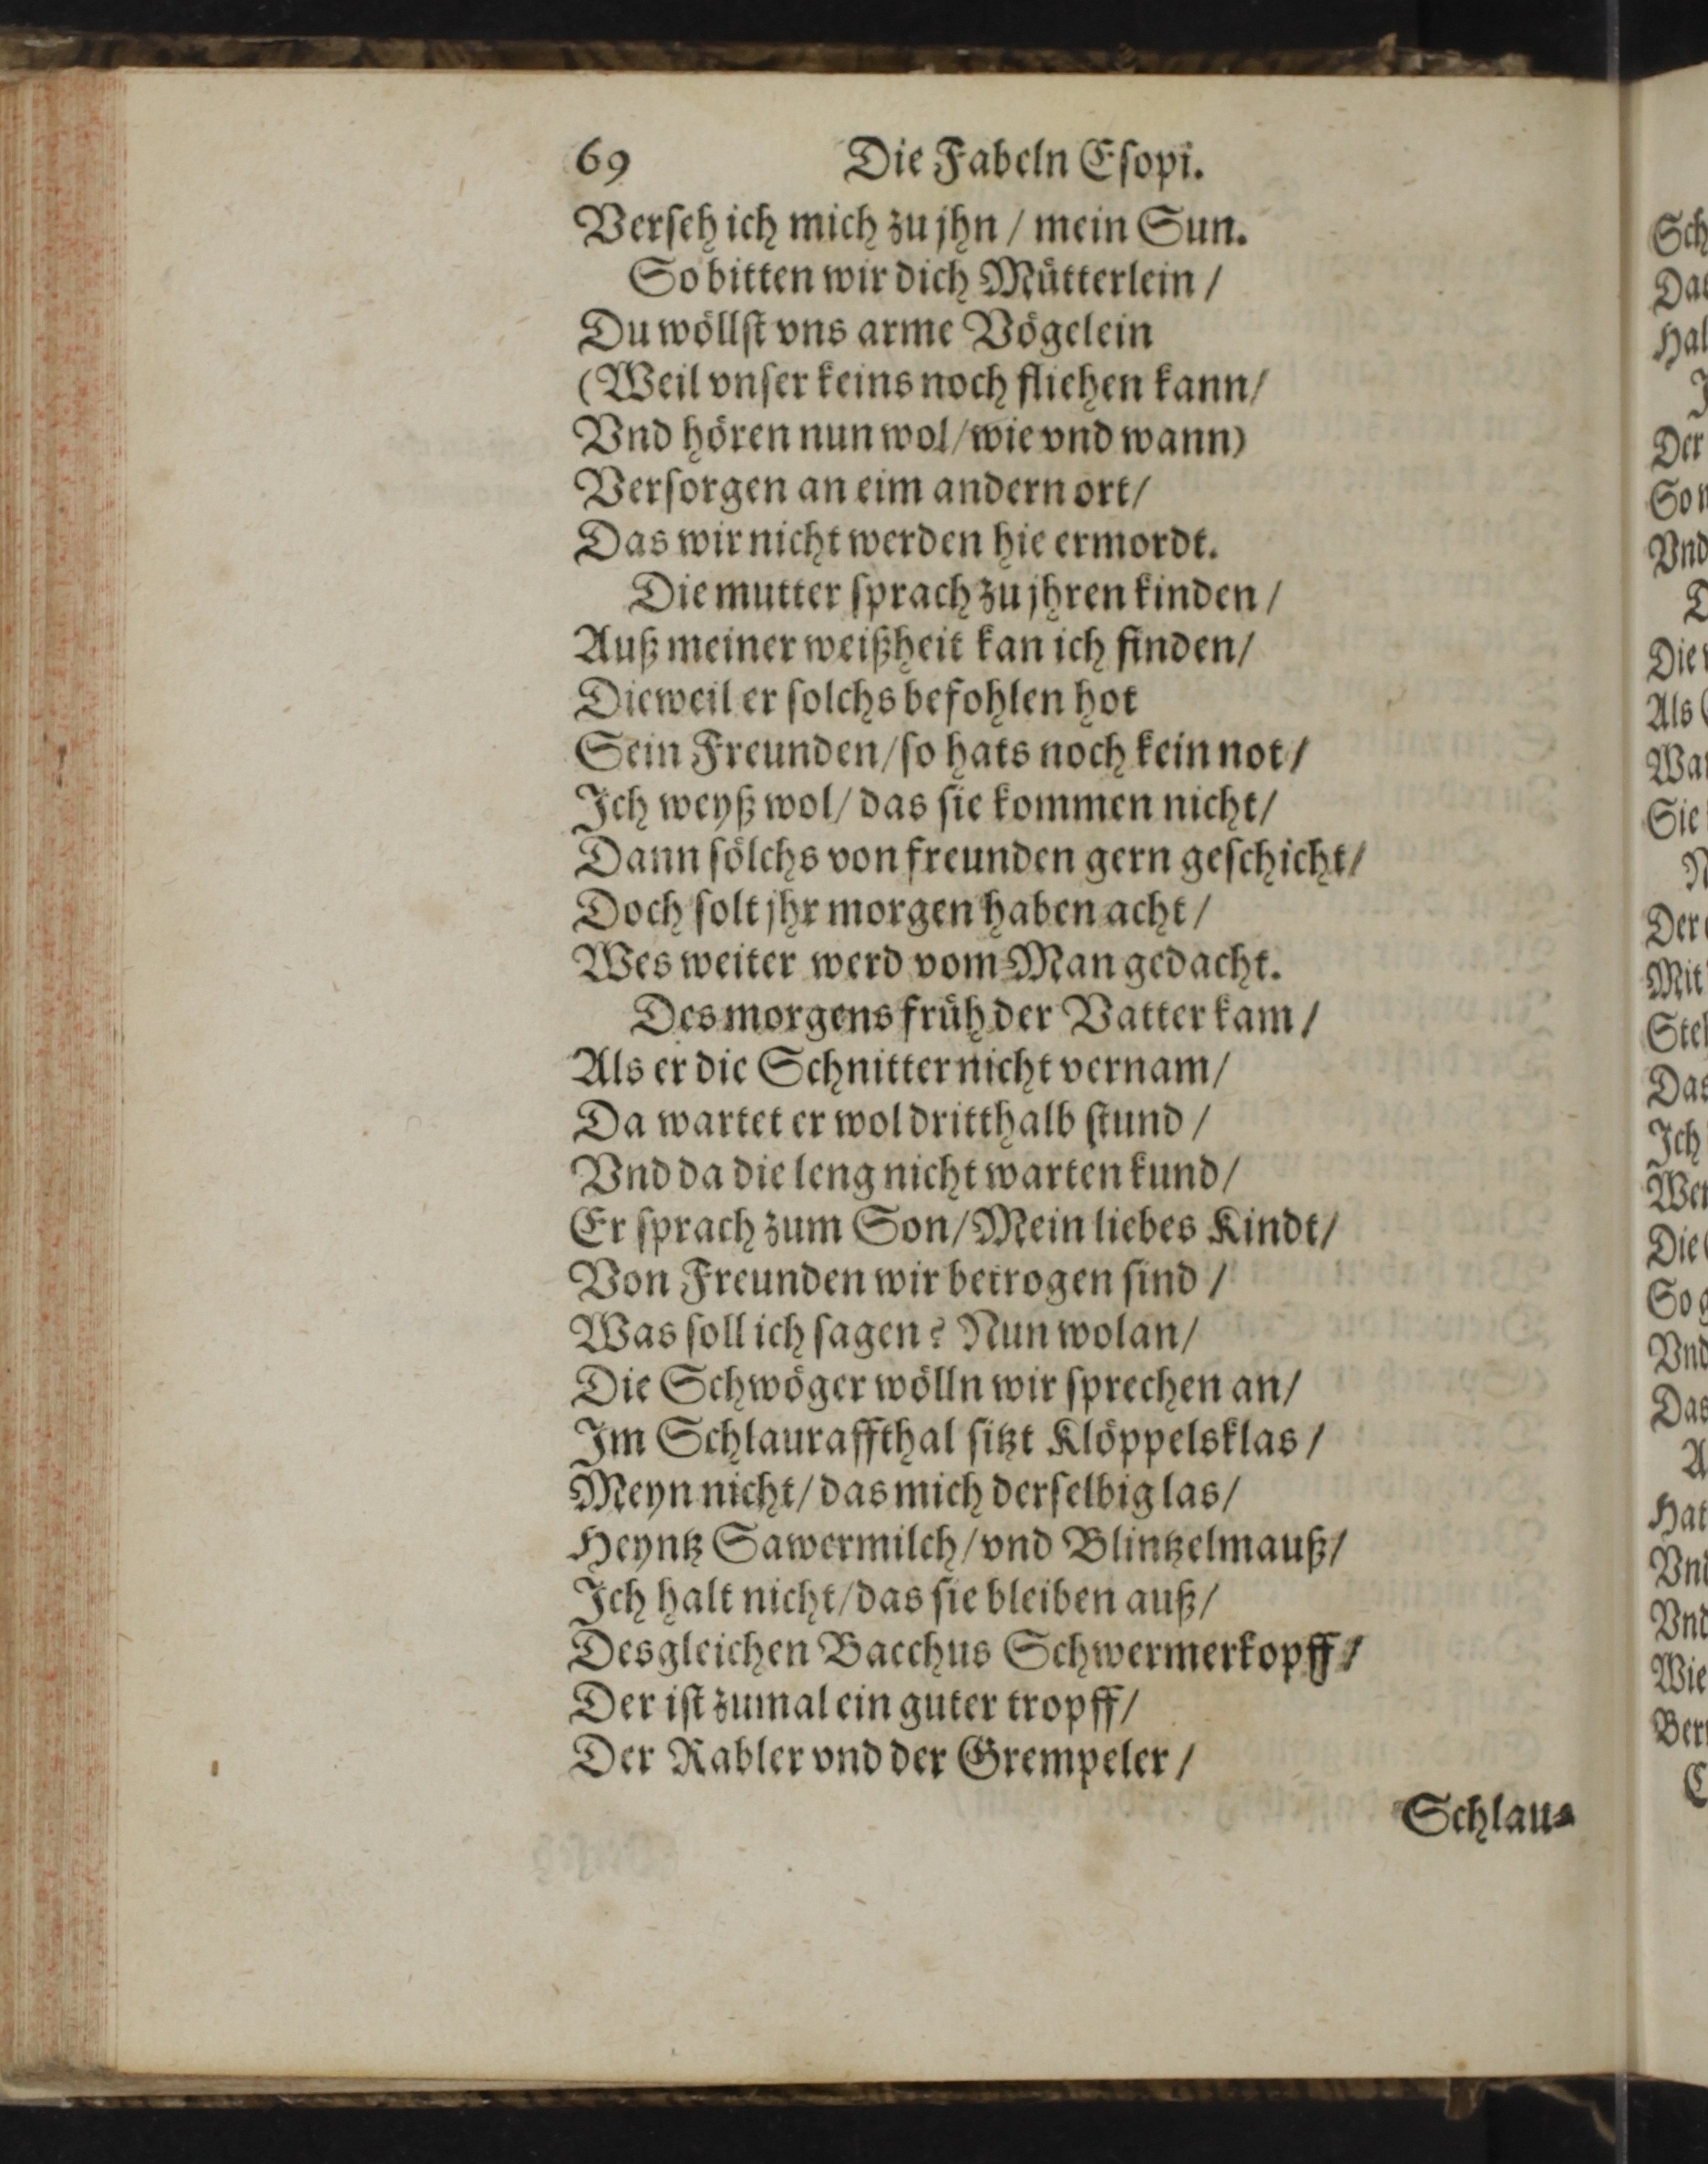 69 Die Fabeln Esopi.
Verseh ich mich zu jhn / mein Sun.
So bitten wir dich Mütterlein /
Du wöllst vns arme Vögelein
(Weil vnser keins noch fliehen kann/
Vnd hören nun wol/wie vnd wann)
Versorgen an eim andern ort/
Das wir nicht werden hie ermordt.
Die mutter sprach zu jhren kinden /
Auß meiner weißheit kan ich finden/
Dieweil er solchs befohlen hot
Sein Freunden/so hats noch kein not/
Ich weyß wol/ das sie kommen nicht/
Dann sölchs von freunden gern geschicht/
Doch solt jhr morgen haben acht /
Wes weiter werd vom Man gedacht.
Des morgens früh der Vatter kam /
Als er die Schnitter nicht vernam/
Da wartet er wol dritthalb stund /
Vnd da die leng nicht warten kund/
Er sprach zum Son/Mein liebes Kindt/
Von Freunden wir betrogen sind /
Was soll ich sagen? Nun wolan/
Die Schwöger wölln wir sprechen an/
Im Schlauraffthal sitzt Klöppelsklas /
Meyn nicht/ das mich derselbig las/
Heyntz Sawermilch/vnd Blintzelmauß/
Ich halt nicht/das sie bleiben auß/
Desgleichen Bacchus Schwermerkopff/
Der ist zumal ein guter tropff/
Der Rabler vnd der Grempeler /
Schlau-